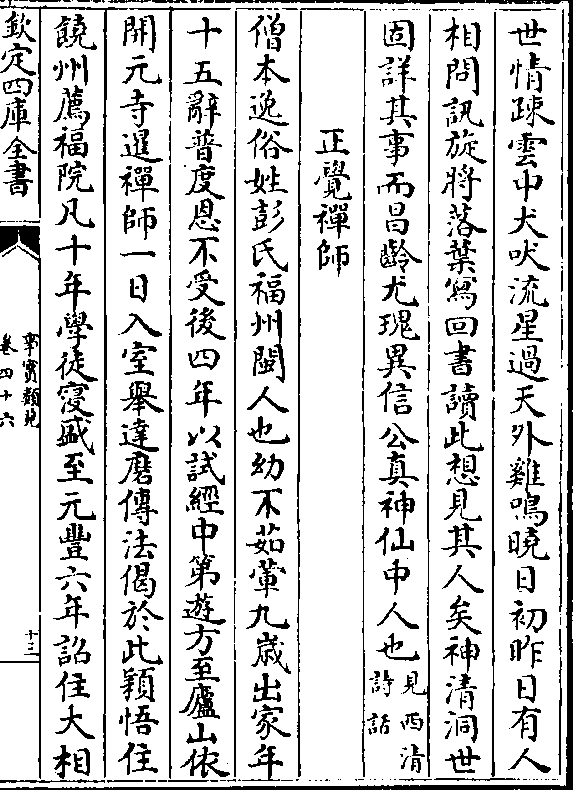 世情疎雲中犬吠流星過天外雞鳴曉日初昨日有人
相問訊旋將落葉寫回書讀此想見其人矣神清洞世
固詳其事而昌齡尤瑰異信公真神仙中人也見西清詩話
正覺禪師
僧本逸俗姓彭氏福州閩人也幼不茹葷九歲出家年
十五辭普度恩不受後四年以試經中第遊方至廬山依
開元寺暹禪師一日入室舉達磨傳法偈於此穎悟住
饒州薦福院凡十年學徒寖盛至元豐六年詔住大相
欽定四庫全書
事實類苑
卷四十六
十三